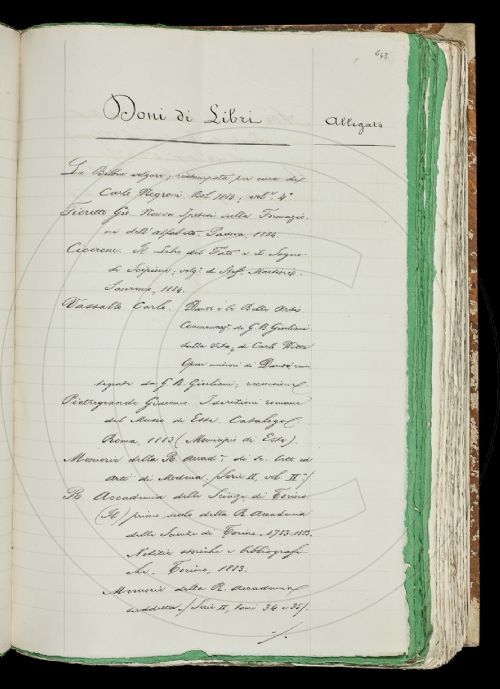 643
Doni di Libri
Allegato
La Bibbia volgare, ristampata per cura del
Carlo Negroni. Bol. 1884, vol. 4°
Fioretto Gio. Nuova ipotesi sulla Formazio-
ne dell'alfabeto. Padova, 1884.
Cicerone. Il Libro del Fato e il Sogno
di Scipione; volg. di
1884.
Vassallo Carlo. Dante e le Belle Arti
Commemoraz. di G. B. Giuliani
dalla Vita, di Carlo Witte
Opere minori di Dante com
da G. B. Giuliani, recensione
Pietrogrande Giacomo. Iscrizioni romane
del Museo di Este. Catalogo
Roma, 1883 (Municipio di Este).
Memorie della R. Accad. di sc. lett. ed
Arti di Modena, (Serie II, vol. II)
R. Accademia delle Scienze di Torino
(Il) primo secolo della R. Accademia
delle Scienze di Torino 1783-1883.
Notizie storiche e bibliografi-
che. Torino, 1883.
Memorie della R. Accademia
suddetta (Serie II, tomi 34 e 35).
./.